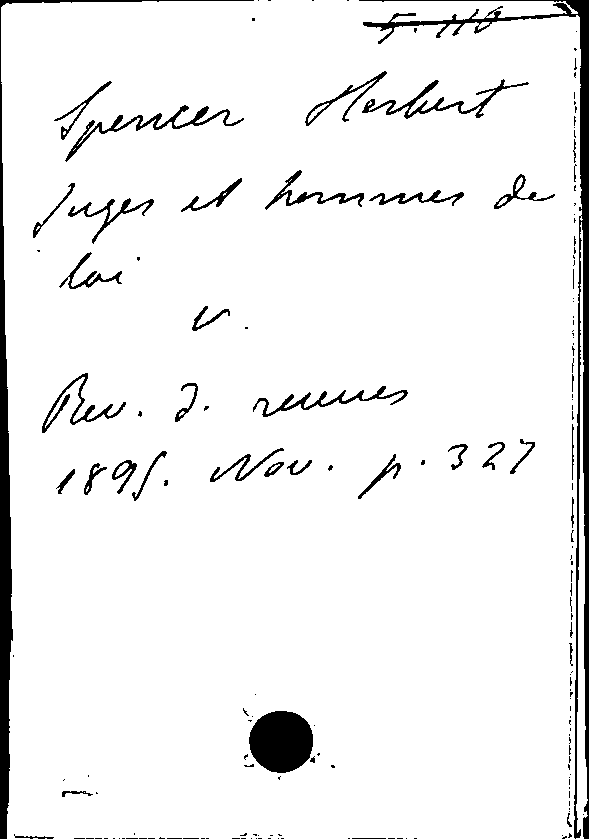 5. 110
Spencer Herbert
Juges et hommes de
loi
v.
Rev. d. revues
1895. Nov. p. 327